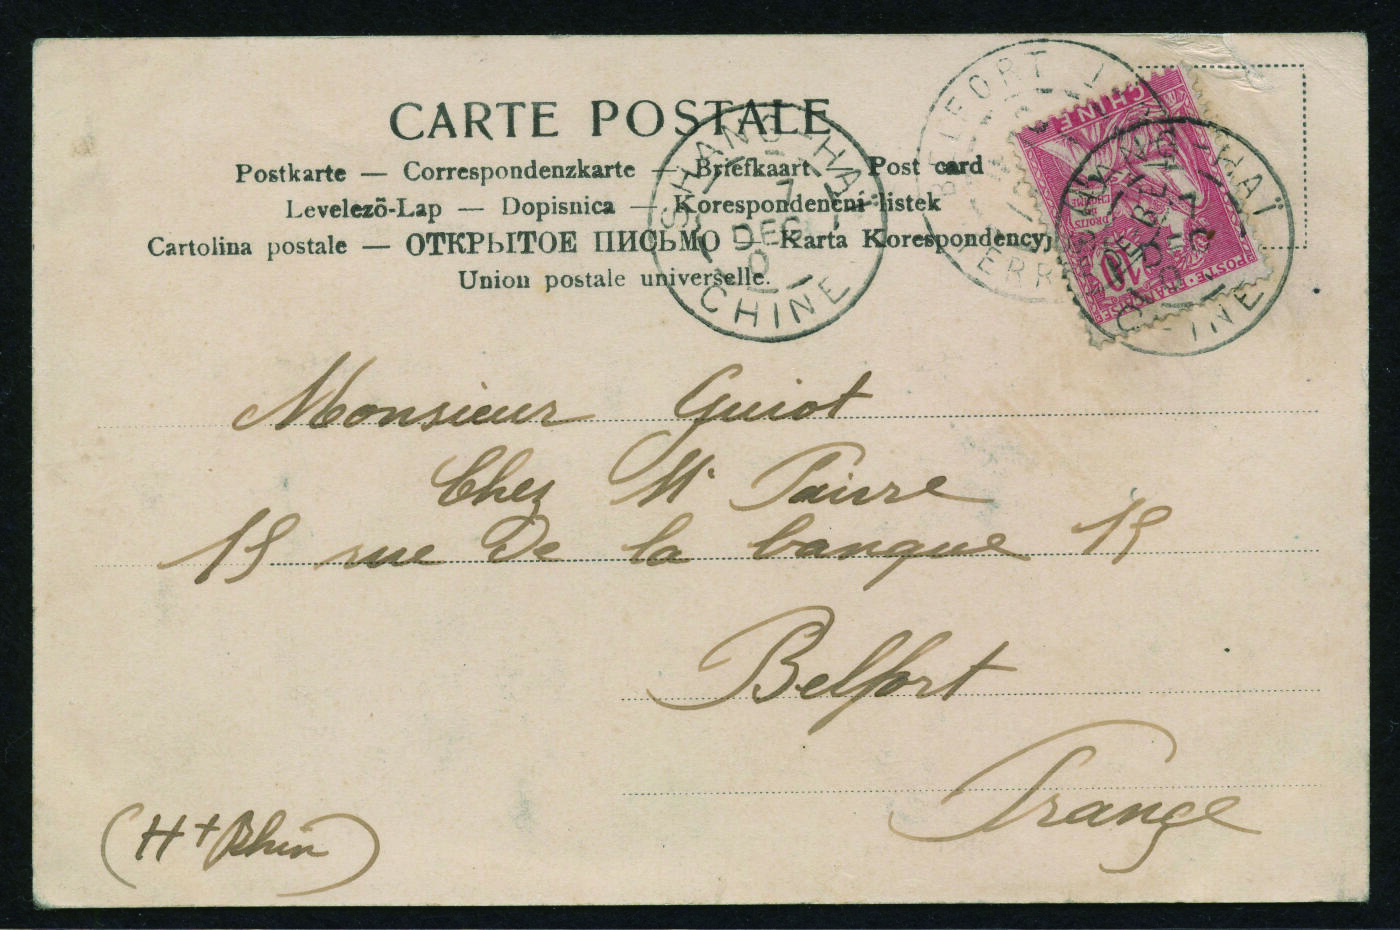 CARTE POSTALE
Postkarte — Correspondenzkarte — Briefkaart — Post card
Levelezõ-Lap — Dopisnica — Korespondenčni listek
Cartolina postale — ОТКРЫТОЕ ПИСЬМО — Karta Korespondencyj
Union postale universelle.
SHANG-HAI
7
DEC
0
CHINE
BELFORT
TERR
CHINE
DROITS
DE
L'HOMME
10
POSTE FRANÇAISE
HAÏ
INE
Monsieur Guiot
Chez Mr Faivre
15 rue De la banque 15
Belfort
France
(Ht Rhin)